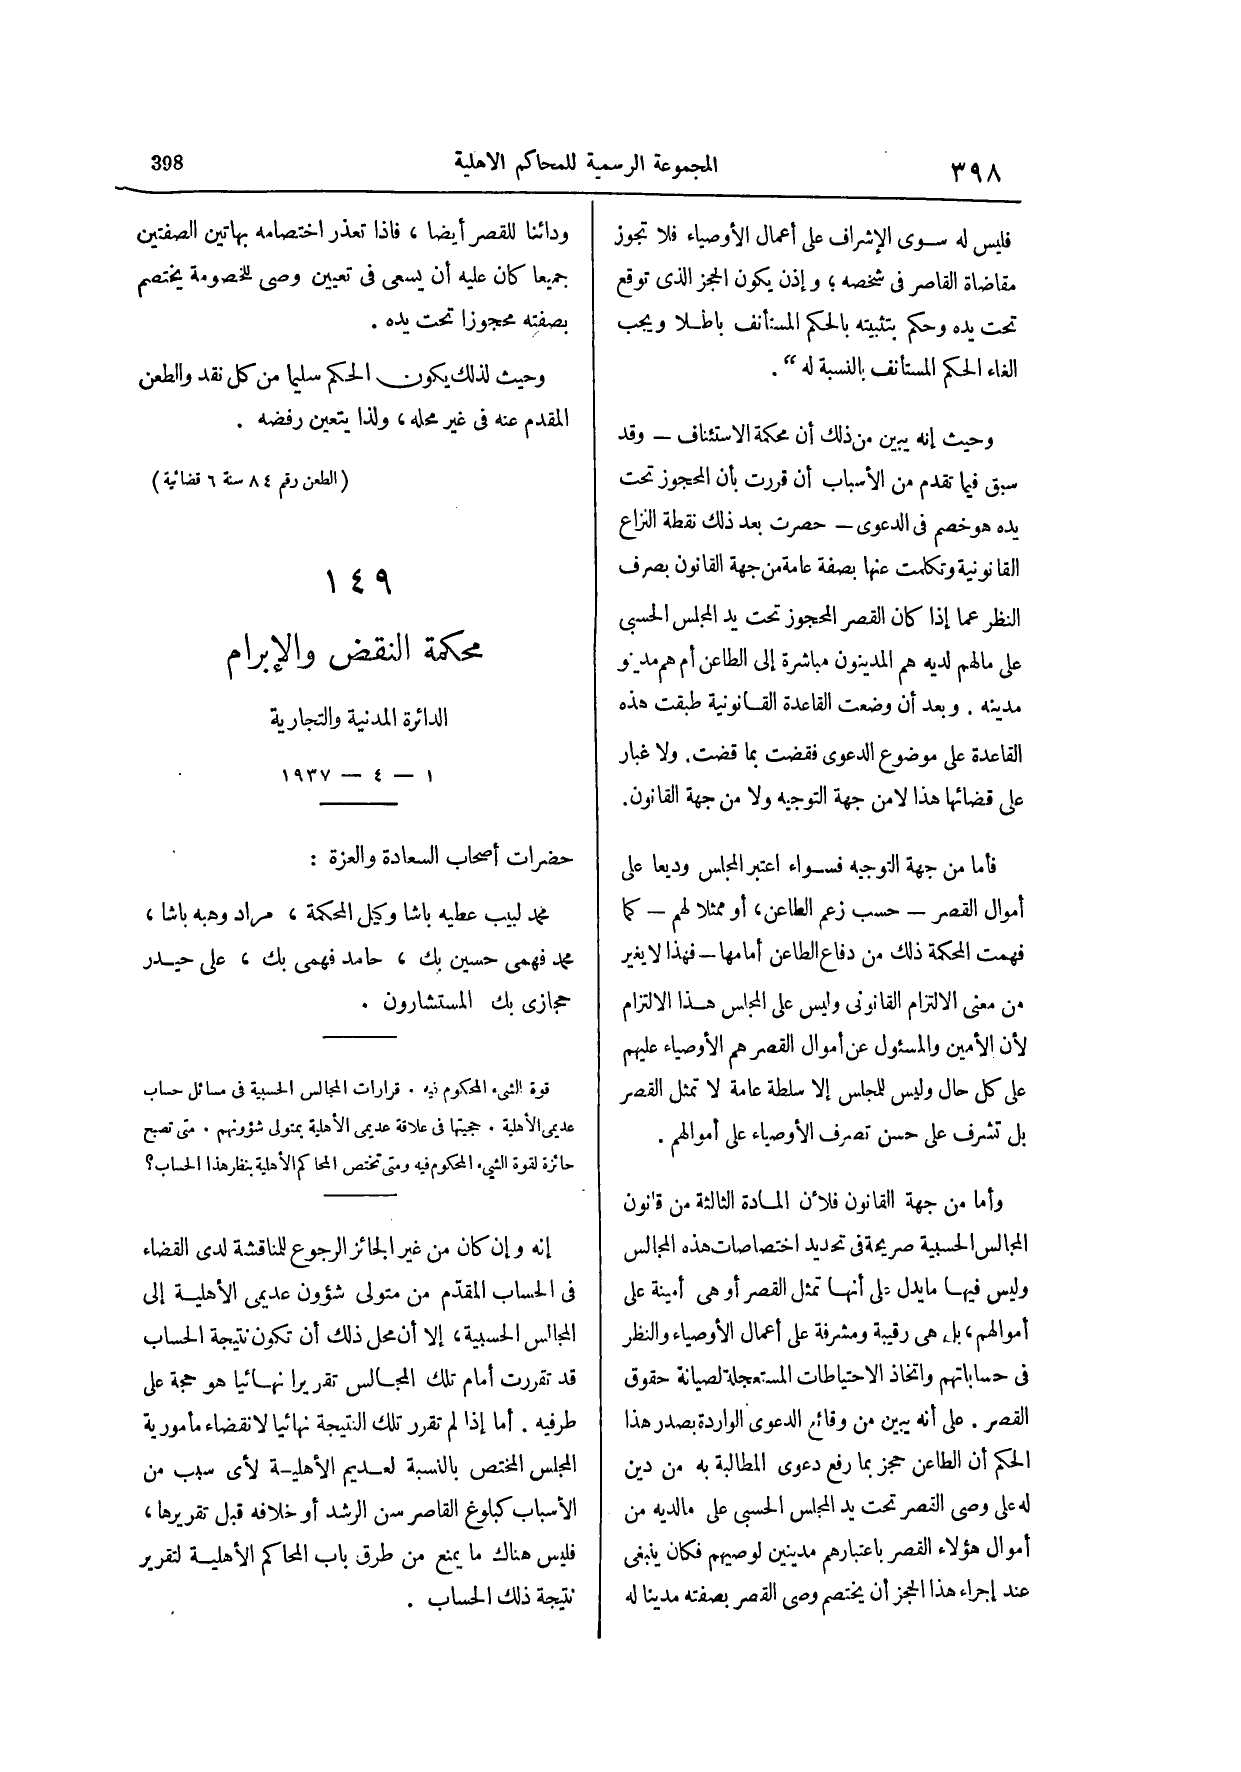 ٣٩٨
المجموعة الرسمية للمحاكم الاهلية
398
فليس له سوى الإشراف على أعمال الأوصياء فلا تجوز
مقاضاة القاصر فى شخصه ؛ وإذن يكون الحجز الذى توقع
تحت يده وحكم بتثبيته بالحكم المستأنف باطلا ويجب
الغاء الحكم المستأنف بالنسبة له “ .
وحيث إنه يبين من ذلك أن محكمة الاستئناف — وقد
سبق فيما تقدم من الأسباب أن قررت بأن المحجوز تحت
يده هو خصم فى الدعوى — حصرت بعد ذلك نقطة النزاع
القانونية وتكلمت عنها بصفة عامة من جهة القانون بصرف
النظر عما إذا كان القصر المحجوز تحت يد المجلس الحسبى
على مالهم لديه هم المدينون مباشرة إلى الطاعن أم هم مدينو
مدينه . وبعد أن وضعت القاعدة القانونية طبقت هذه
القاعدة على موضوع الدعوى فقضت بما قضت . ولا غبار
على قضائها هذا لا من جهة التوجيه ولا من جهة القانون .
فأما من جهة التوجيه فسواء اعتبر المجلس وديعا على
أموال القصر — حسب زعم الطاعن ، أو ممثلا لهم — كما
فهمت المحكمة ذلك من دفاع الطاعن أمامها — فهذا لا يغير
من معنى الالتزام القانونى وليس على المجلس هذا الالتزام
لأن الأمين والمسئول عن أموال القصر هم الأوصياء عليهم
على كل حال وليس للمجلس إلا سلطة عامة لا تمثل القصر
بل تشرف على حسن تصرف الأوصياء على أموالهم .
وأما من جهة القانون فلأن المادة الثالثة من قانون
المجالس الحسبية صريحة فى تحديد اختصاصات هذه المجالس
وليس فيها مايدل على أنها تمثل القصر أو هى أمينة على
أموالهم ، بل هى رقيبة ومشرفة على أعمال الأوصياء والنظر
فى حساباتهم واتخاذ الاحتياطات المستعجلة لصيانة حقوق
القصر . على أنه يبين من وقائع الدعوى الواردة بصدر هذا
الحكم أن الطاعن حجز بما رفع دعوى المطالبة به من دين
له على وصى القصر تحت يد المجلس الحسبى على مالديه من
أموال هؤلاء القصر باعتبارهم مدينين لوصيهم فكان ينبغى
عند إجراء هذا الحجز أن يختصم وصى القصر بصفته مدينا له
ودائنا للقصر أيضا ، فاذا تعذر اختصامه بهاتين الصفتين
جميعا كان عليه أن يسعى فى تعيين وصى للخصومة يختصم
بصفته محجوزا تحت يده .
وحيث لذلك يكون الحكم سليما من كل نقد والطعن
المقدم عنه فى غير محله ، ولذا يتعين رفضه .
( الطعن رقم ٨٤ سنة ٦ قضائية )
١٤٩
محكمة النقض والإبرام
الدائرة المدنية والتجارية
١ — ٤ — ١٩٣٧
حضرات أصحاب السعادة والعزة :
محمد لبيب عطيه باشا وكيل المحكمة ، مراد وهبه باشا ،
محمد فهمى حسين بك ، حامد فهمى بك ، على حيدر
حجازى بك المستشارون .
قوة الشىء المحكوم فيه . قرارات المجالس الحسبية فى مسائل حساب
عديمى الأهلية . حجيتها فى علاقة عديمى الأهلية بمتولى شؤونهم . متى تصبح
حائزة لقوة الشىء المحكوم فيه ومتى تختص المحاكم الأهلية بنظر هذا الحساب ؟
إنه وإن كان من غير الجائز الرجوع للمناقشة لدى القضاء
فى الحساب المقدّم من متولى شؤون عديمى الأهلية إلى
المجالس الحسبية ، إلا أن محل ذلك أن تكون نتيجة الحساب
قد تقررت أمام تلك المجالس تقريرا نهائيا هو حجة على
طرفيه . أما إذا لم تقرر تلك النتيجة نهائيا لانقضاء مأمورية
المجلس المختص بالنسبة لعديم الأهلية لأى سبب من
الأسباب كبلوغ القاصر سن الرشد أو خلافه قبل تقريرها ،
فليس هناك ما يمنع من طرق باب المحاكم الأهلية لتقرير
نتيجة ذلك الحساب .